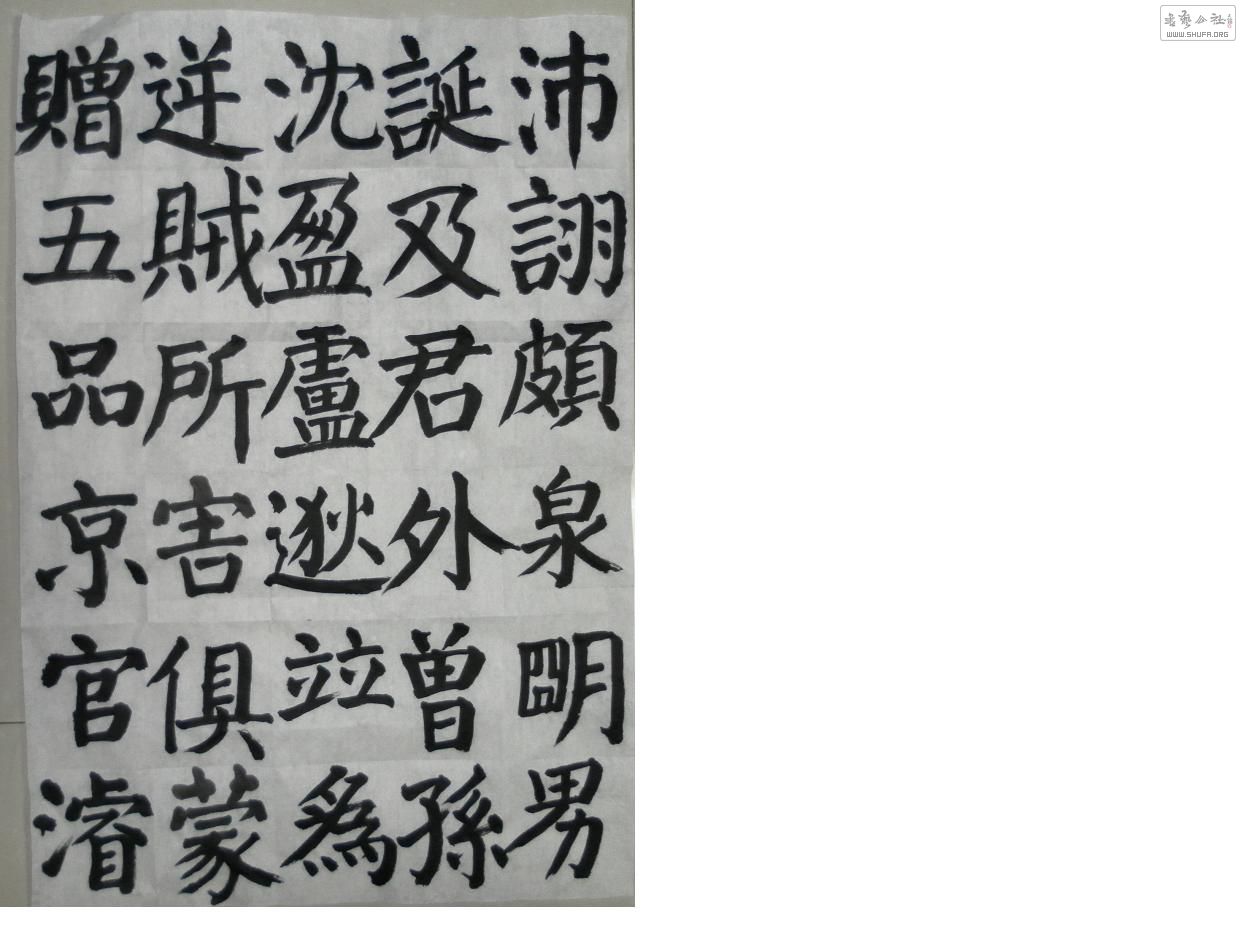 沛詡頗泉明男
誕及君外曾孫
沈盈盧逖竝爲
逆賊所害俱蒙
贈五品京官濬
書藝公社
WWW.SHUFA.ORG